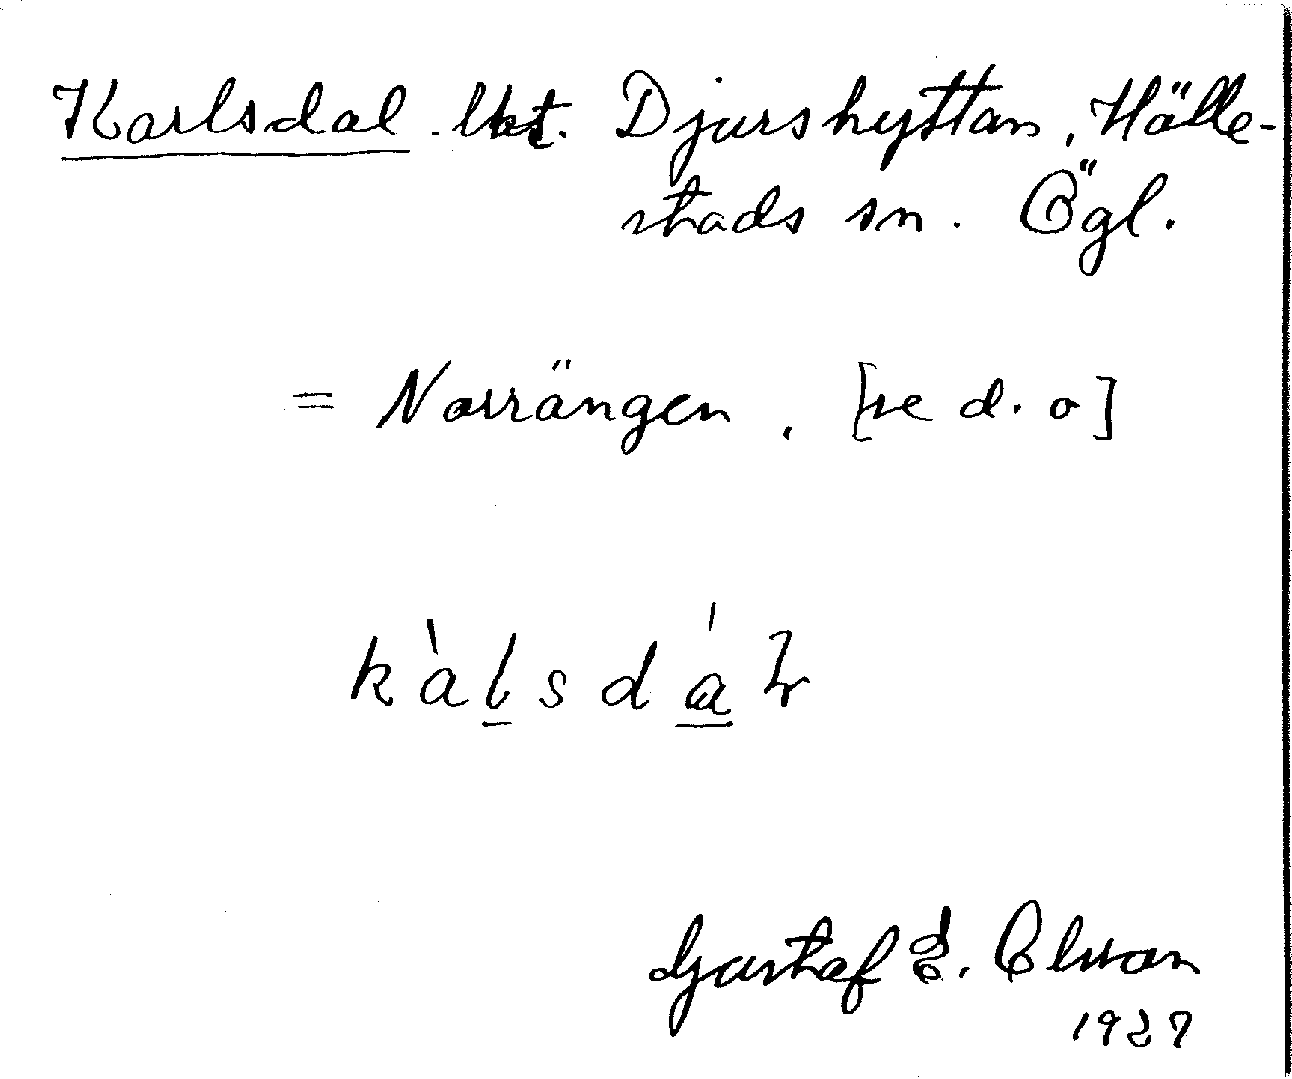 Karlsdal. lht. Djurshyttan, Hälle-
stads sn. Ögl.
= Norrängen, [se d. o]
kàlsdál
Gustaf E. Olsson
1927